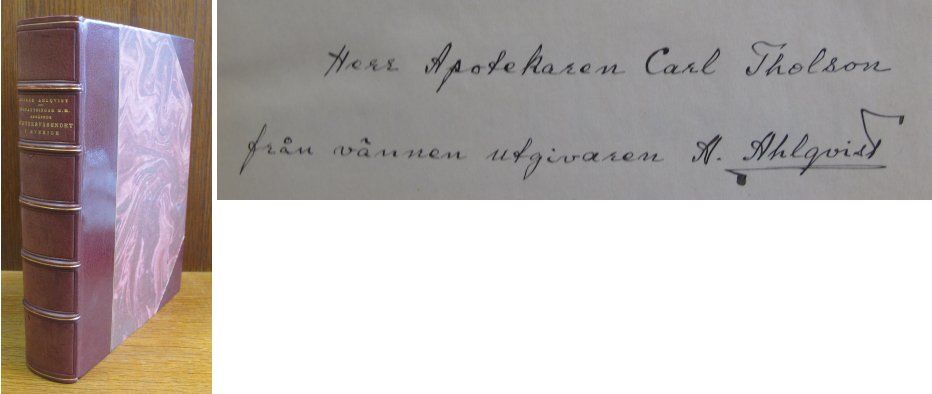 AHLQVIST
I SVERIGE
Herr Apotekaren Carl Tholson
från vännen utgivaren A. Ahlqvist